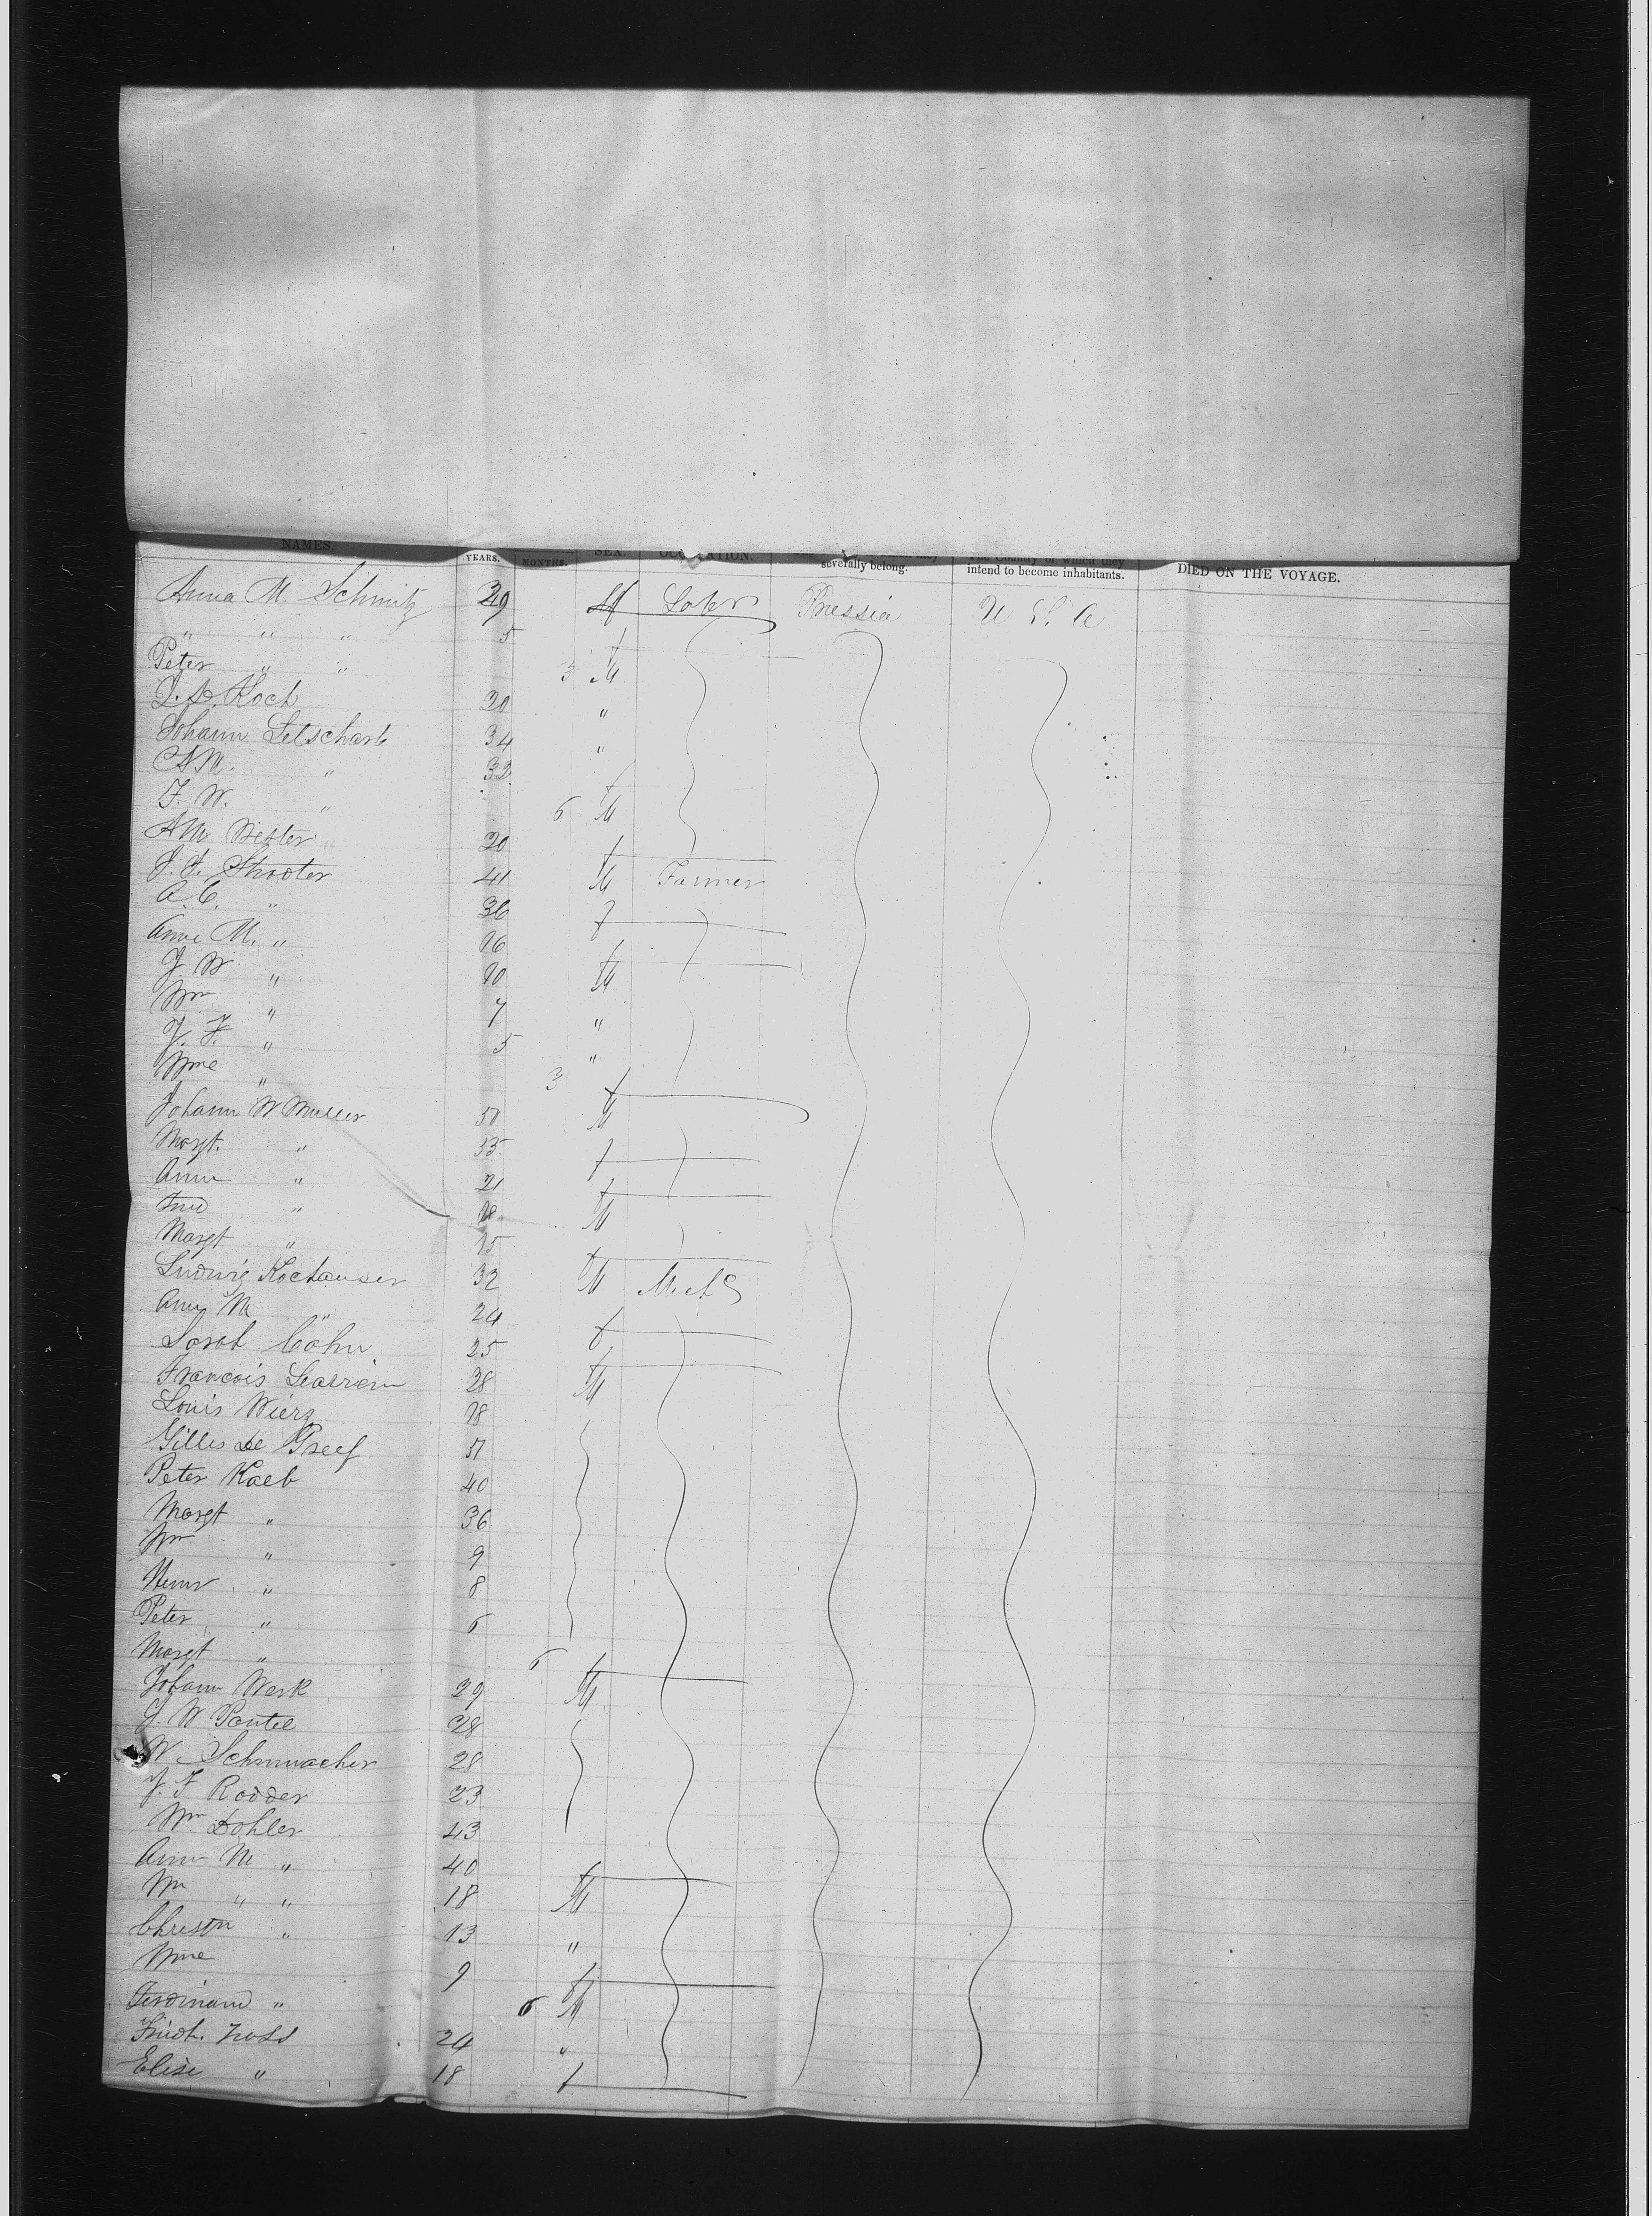 NAMES. YEARS. MONTHS. SEX. OCCUPATION. severally belong. The Country of which they intend to become inhabitants. DIED ON THE VOYAGE.
Anna M. Schmitz 29 Prussia U S. A
" " " 5 f
Peter " " 3 M
Koch 20 "
Johann Letschart 34 "
A M. " 32 f
F. W. " 6 M
A M Wester " 20 f
J. F. Shroter 41 M Farmer
A. C. " 36 f
Anne M. " 16 f
J. W " 10 M
Wm " 7 "
J. F. " 5 "
Wme " 3 f
Johann W Muller 51 M
Margt. " 33 f
Ann " 21 f
Fred " 18 M
Margt " 15 f
Ludwig Kochauser 32 M
Ann M " 24 f
Sarah Cohn 25 f
Francois 28 M
Louis Wierz 18
Gilles De Greef 51
Peter Kaeb 40
Margt " 36
Wm " 9
Henr " 8
Peter " 6
Margt " 6 f
Johann Werk 29 M
J. W Pontel 28
W Schumacher 28
J. F Rodder 23
Wm Dohler 43
Ann M " 40 f
Wm " " 18 M
Christn " 13 "
Wme 9 f
Ferdinand " 6 M
Friedr. 24 "
Elise " 18 f